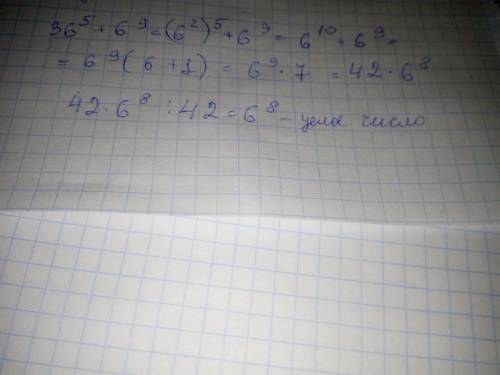 36⁵ + 6⁹ = (6²)⁵ + 6⁹ = 6¹⁰ + 6⁹ =
= 6⁹ (6 + 1) = 6⁹ · 7 = 42 · 6⁸
42 · 6⁸ : 42 = 6⁸ - цела число